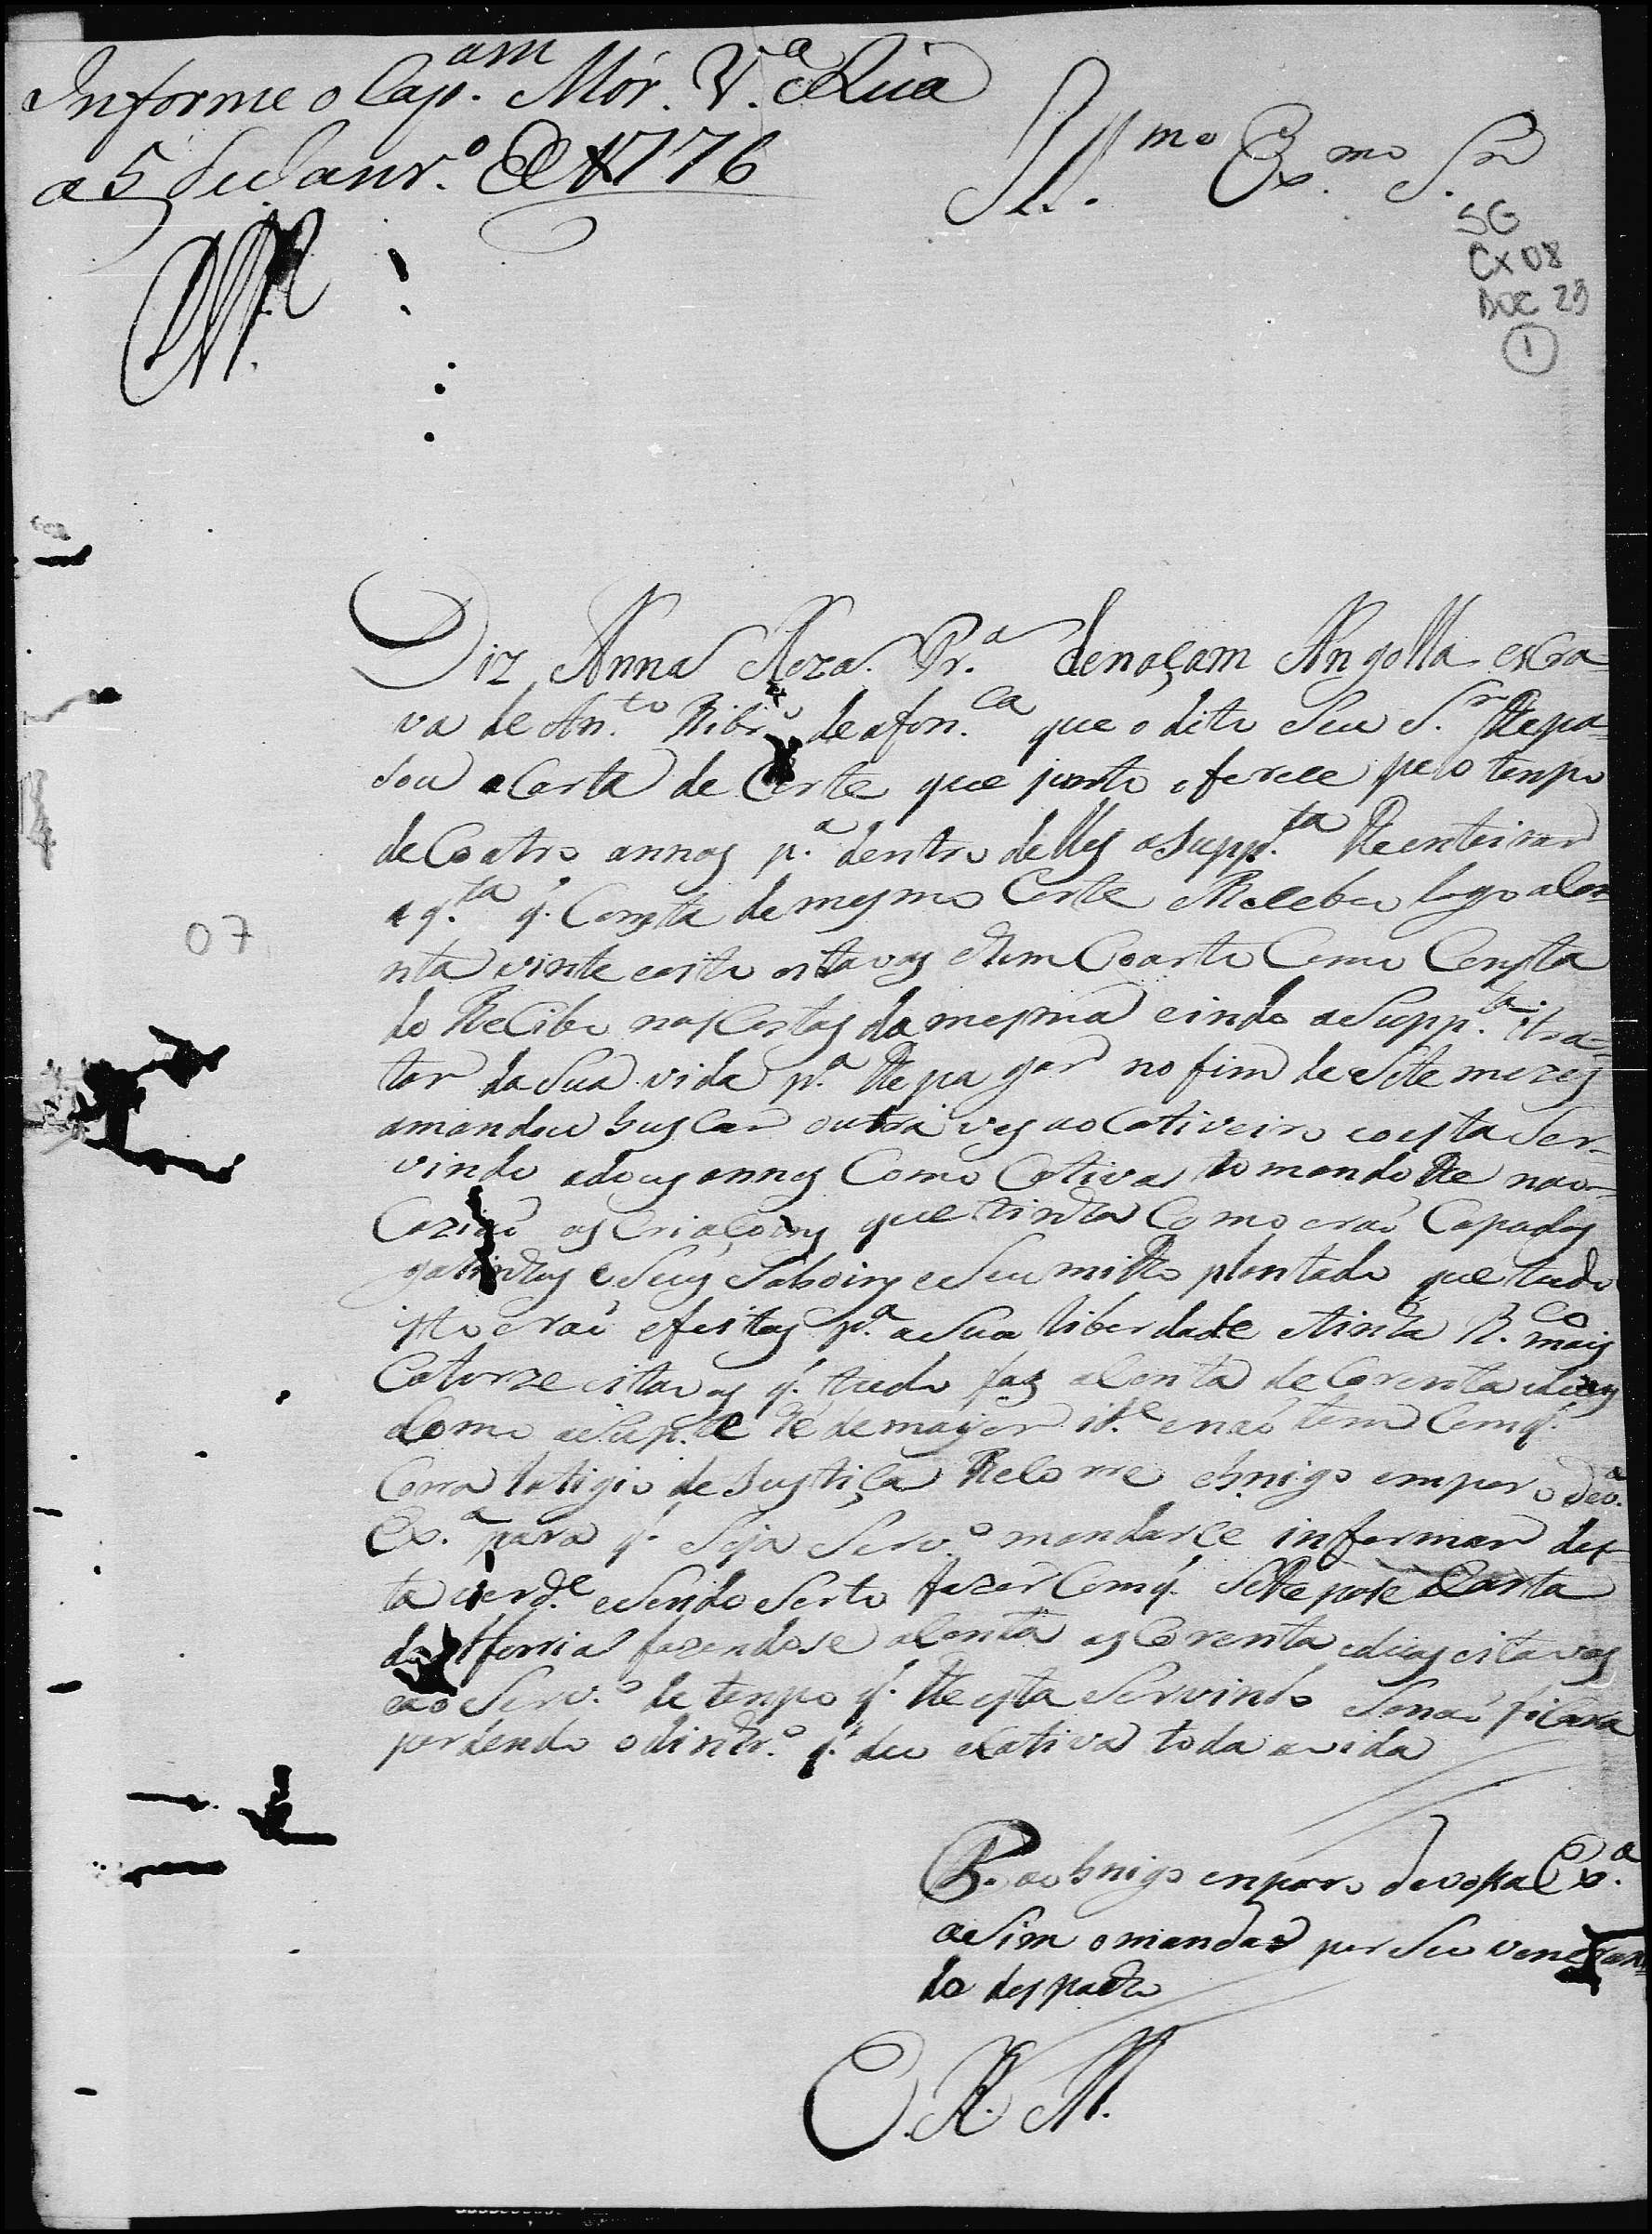 Informe o Cap.am Mór. V.a Rica
a 5 de Janr.o de 1776
Ill.mo Ex.mo S.r
SG
CX 08
DOC 29
1
Diz Anna Roza. Pr.a denaçam Angolla escra-
va de An.to Ribr.o deafon.ca que o dito Seu S.r lhepa-
sou a Carta de Corte que junto oferece pelo tenpo
de Coatro annos p.a dentro delles aSupp.ta lhe enteirar
a q.ta q. Consta do mesmo Corte eRecebeu logo a Con
nta vinte eoito oitavas ehum Coarto Como Consta
do Recibo nasCostas da mesma eindo aSupp.ta tra-
tar da Sua vida p.a lhe pagar no fim de Sete mezes
amandou busCar outra ves ao Cativeiro eoesta Ser-
vindo adous annos Como Cativa tomando lhe nao
Cazião as Criaçoins que tinha Como eraõ Capados
galinhas e Seus Saboins e Seu milho plantado que tudo
isto eraõ efeitos p.a aSua liberdade etinha R.co mais
Catorze oitavas q. tudo faz aConta de Corenta eduas
eComo aSup.te hé de mayor id.e enaõ tem Comq.
Corra litigio de Justiça ReCorre ebnigo emparo deV.a
Ex.a para q. Seja Serv.o mandarce informar des-
ta verd.e eSendo Serto fazer Comq. Selhe pase Carta
de Alforria fazendose aConta as Corenta eduas oitavas
eao Serv.o do tenpo q. lhe esta Servindo Senaõ ficara
perdendo odinhr.o q. deu eCativa toda avida
07
P. ao bnigo enparo devosa Ex.a
aSim omandar por Seu veneran
do despacho
E. R. M.